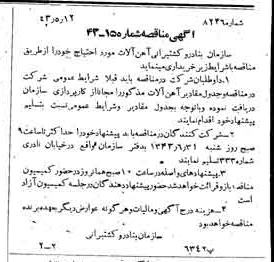 شماره ۸۲۳۶ ۴۳٫۵٫۱۲
آگهی مناقصه شماره ۱۵۵-۴۳
سازمان بنادر و کشتیرانی آهن آلات مورد احتیاج خود را از طریق
مناقصه با شرایط زیر خریداری مینماید
۱ـ داوطلبان شرکت در مناقصه باید قبلا شرایط عمومی شرکت
در مناقصه و جدول مقادیر آهن آلات مذکور را مجاناً از کارپردازی سازمان
دریافت نموده و باتوجه بجدول مقادیر و شرایط عمومی نسبت بتسلیم
پیشنهاد خود اقدام نمایند
۲ـ شرکت کنندگان در مناقصه باید پیشنهاد خود را حداکثر تا ساعت ۹
صبح روز شنبه ۱۳۴۳٫۶٫۳۱ بدفتر سازمان واقع در خیابان نادری
شماره ۳۳۳ تسلیم نمایند
۳ـ پیشنهادهای واصله در ساعت ۱۰ صبح همانروز در حضور کمیسیون
مناقصه باز و قرائت خواهد شد حضور پیشنهاد دهندگان در جلسه کمیسیون آزاد
است
۴ـ هزینه درج آگهی و مالیات و هرگونه عوارض دیگر بعهده برنده
مناقصه خواهد بود
سازمان بنادر و کشتیرانی
پ ۶۳۴۲ ۲-۲